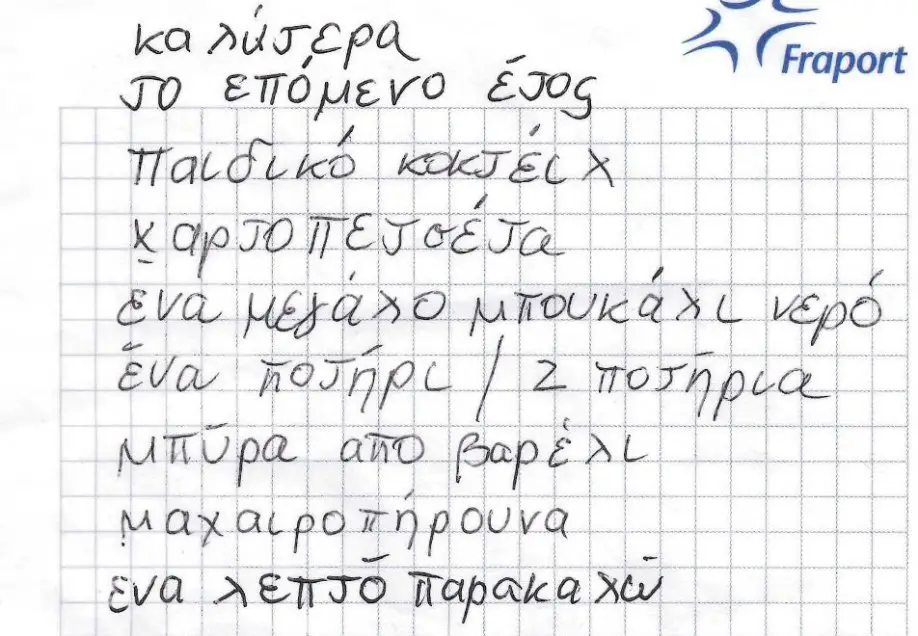 καλύτερα
Fraport
το επόμενο έτος
παιδικό κοκτέιλ
χαρτοπετσέτα
ένα μεγάλο μπουκάλι νερό
ένα ποτήρι / 2 ποτήρια
μπύρα απο βαρέλι
μαχαιροπήρουνα
ενα λεπτό παρακαλώ